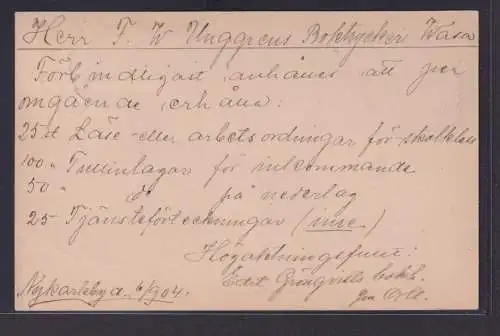 Herr F. W. Unggrens Boktryckeri Wasa
Förbindligast anhånes att per
omgående erhåna:
25 st Läse- eller arbetsordningar för skolklass
100 " Tullinlagor för inkommande
50 " do på nederlag
25 - Tjänsteförteckningar (nye)
Högaktningsfull:
Edit Grönqvists bokh.
gm Orll.
Nykarleby d. 6/9 04.